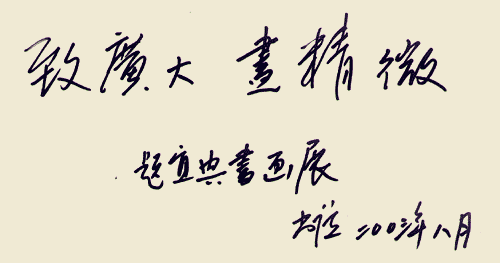 致廣大 盡精微
题宜典書画展
二00三年八月